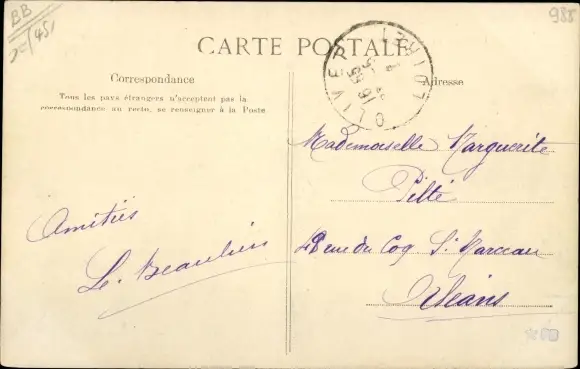 BB
985
CARTE POSTALE
Correspondance
Adresse
Tous les pays étrangers n'acceptent pas la
correspondance au recto, se renseigner à la Poste.
OLIVET
LOIRET
Mademoiselle Marguerite
Pilté
rue du Coq St Marceau
Orléans
Amitiés
Beaulieu